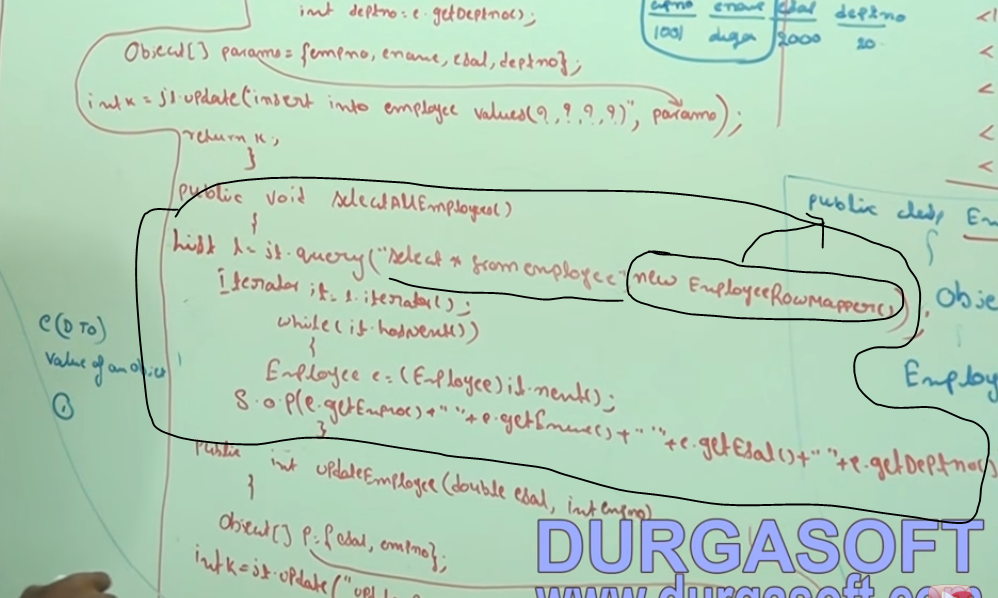 int deptno = e.getDeptno();
empno ename esal deptno
1001 durga 2000 20
Object[] params = {empno, ename, esal, deptno};
int k = jt.update("insert into employee values(?,?,?,?)", params);
return k;
}
public void selectAllEmployees()
{
List l = jt.query("select * from employee" new EmployeeRowMapper());
Iterator it = l.iterator();
while(it.hasNext())
{
Employee e = (Employee)it.next();
S.o.p(e.getEmpno()+" "+e.getEname()+" "+e.getEsal()+" "+e.getDeptno()
}
public int updateEmployee(double esal, int empno)
{
Object[] p = {esal, empno};
int k = jt.update("
public class Em
{
Obje
Employ
e(DTO)
value of an object
①
DURGASOFT
www.durgasoft.com